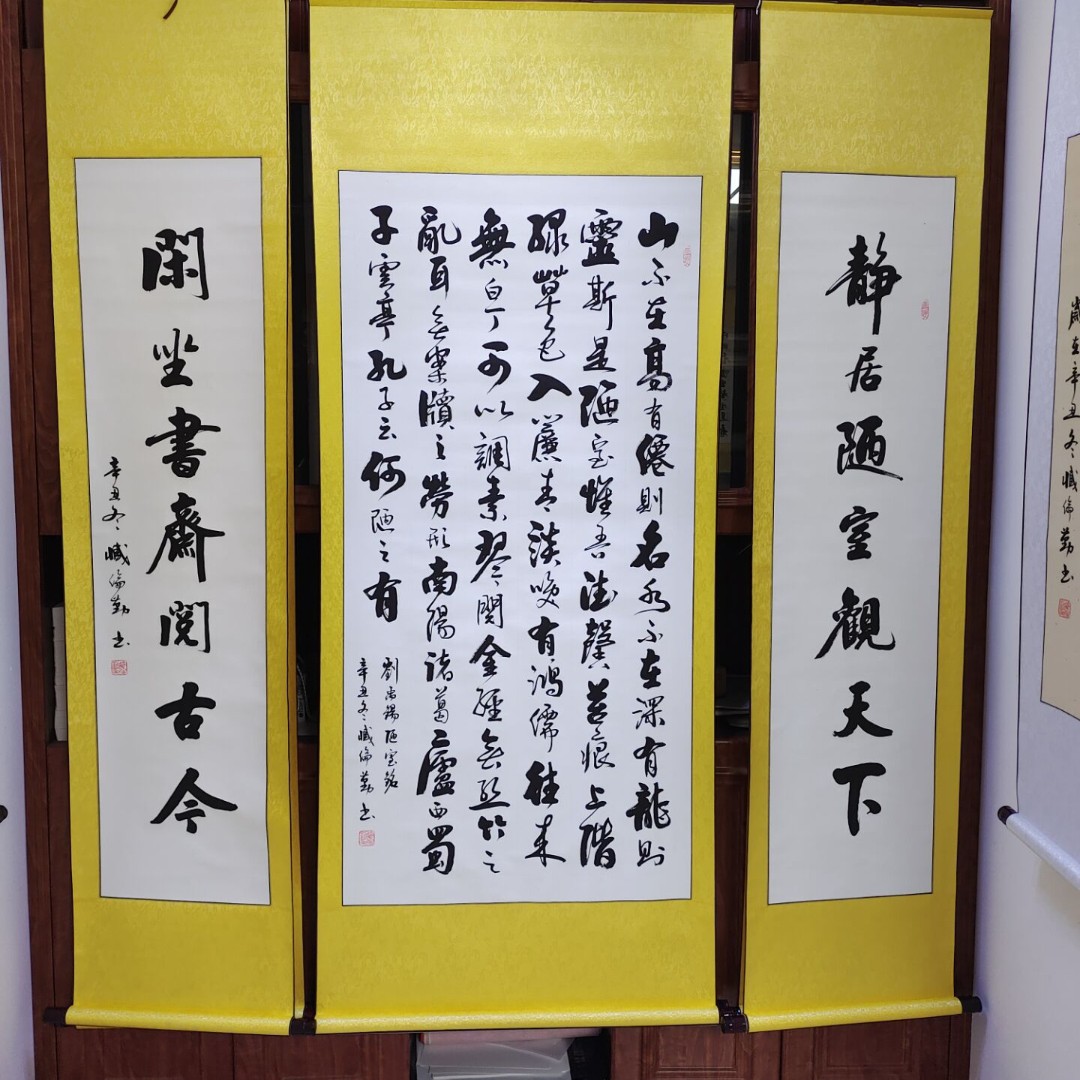 歲在辛丑冬臧倫勤書
静居陋室觀天下
山不在高有僊則名水不在深有龍則
靈斯是陋室惟吾德馨苔痕上階
緑草色入簾青談咲有鴻儒往來
無白丁可以調素琴閱金經無絲竹之
亂耳無案牘之勞形南陽諸葛廬西蜀
子雲亭孔子云何陋之有
劉禹錫陋室銘
辛丑冬臧倫勤書
閑坐書齋閱古今
辛丑冬臧倫勤書